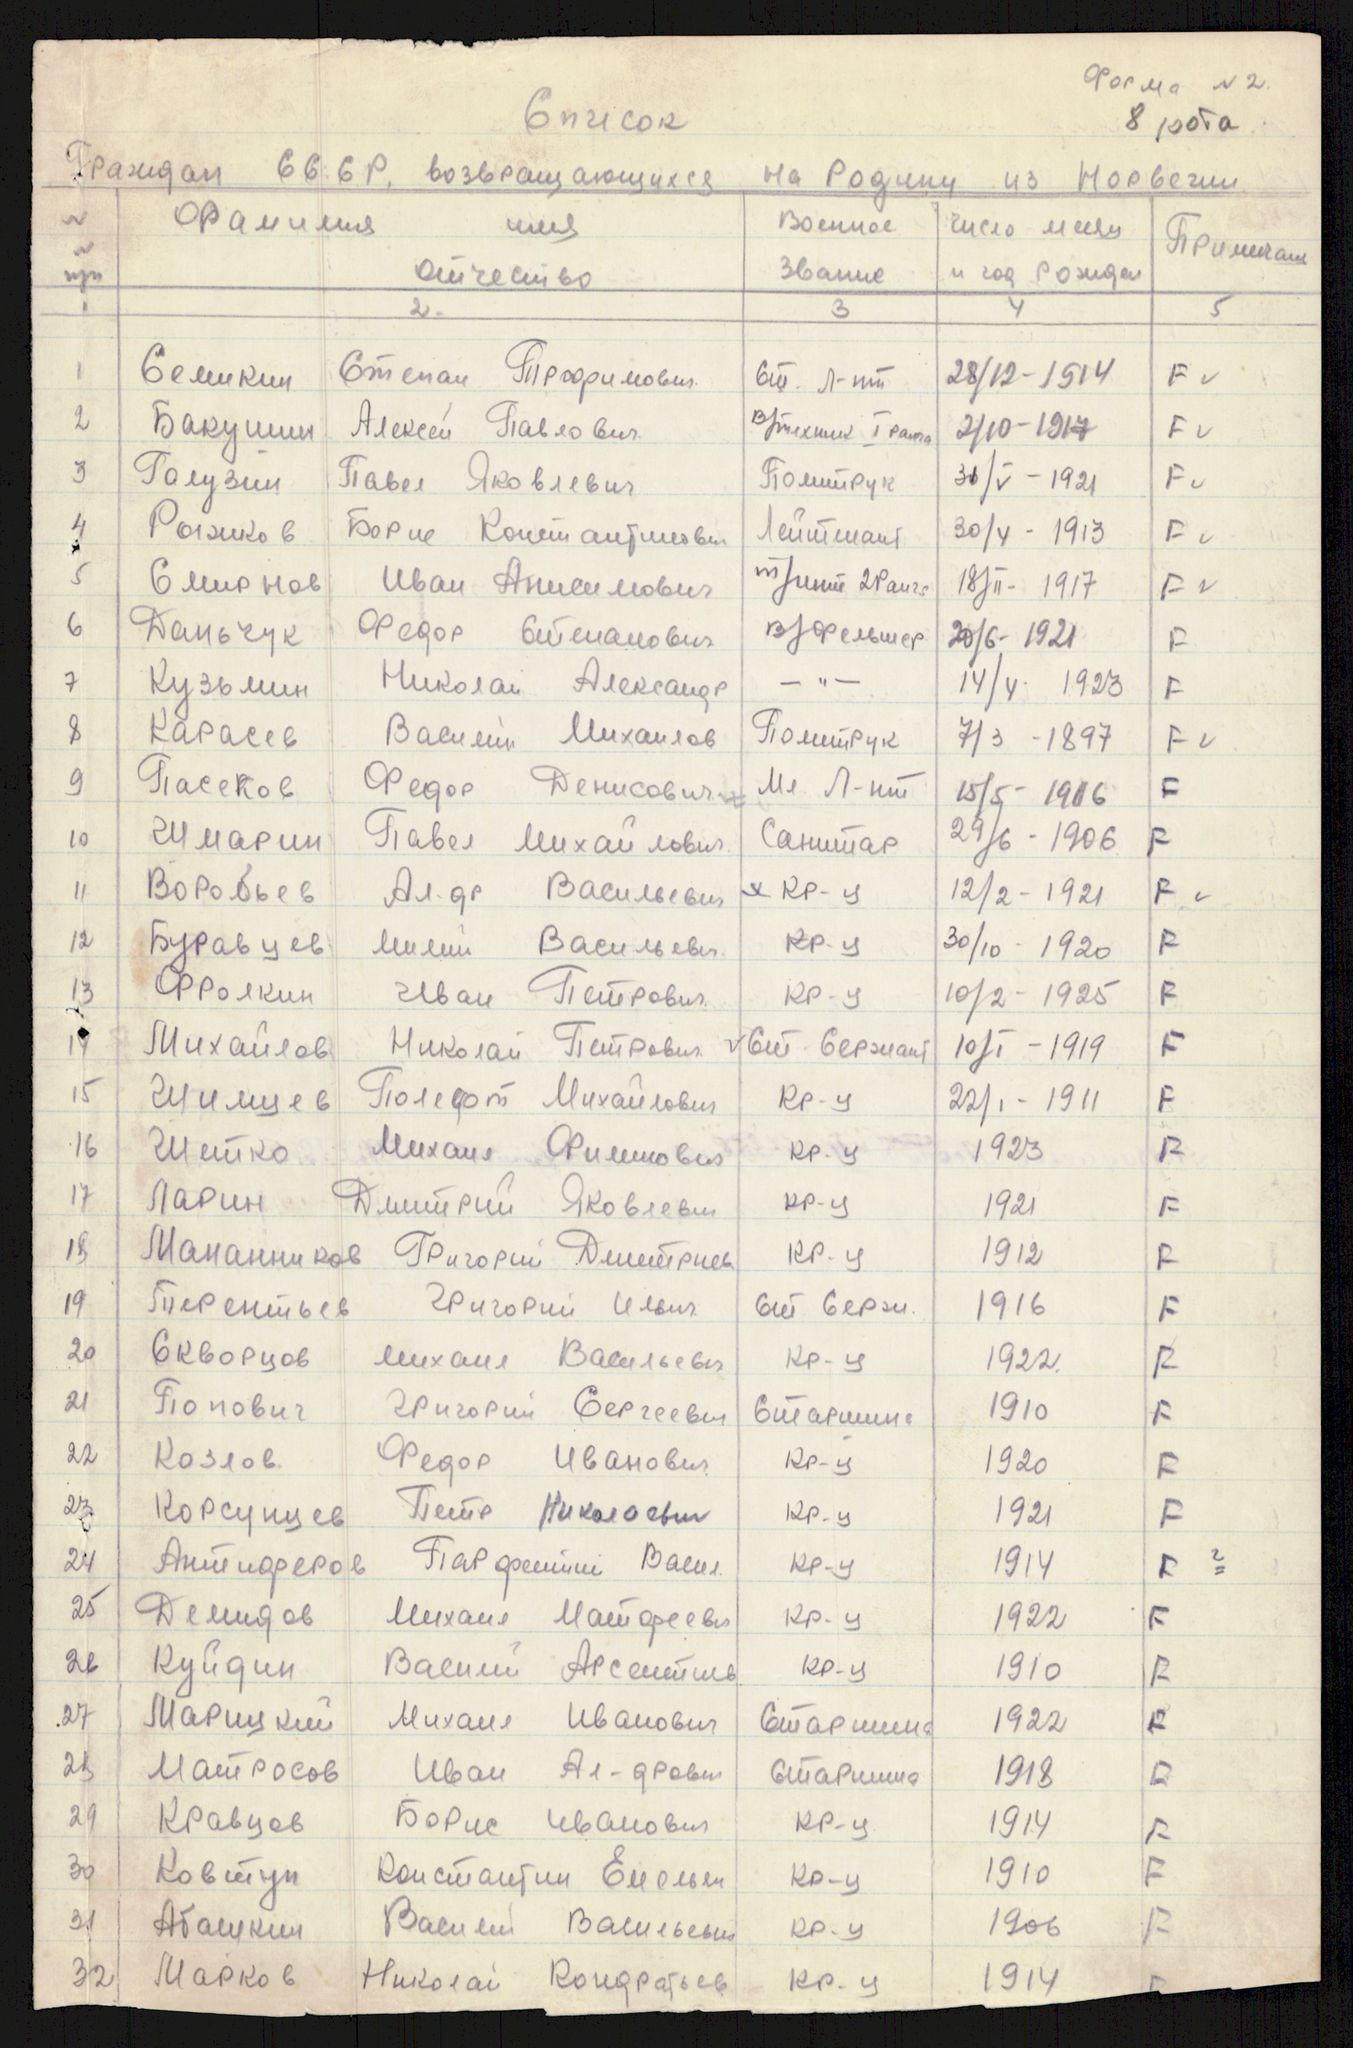 Форма N 2.
8 рота
Список
Граждан СССР, возвращающихся на Родину из Норвегии
N N п/п Фамилия имя отчество Военное Звание Число месяц и год рожден Примечан
1 2. 3 4 5
1 Семикин Степан Трофимович Ст. Л-нт 28/12-1914 F v
2 Бакушин Алексей Павлович В/техник I ранга 2/10-1917 F v
3 Голузин Павел Яковлевич Политрук 30/V-1921 F v
4 Рыжков Борис Константинович Лейтенант 30/4-1913 F v
5 Смирнов Иван Анисимович т/инт 2 Ранга 18/II-1917 F v
6 Даньчук Федор Степанович В/Фельшер 20/6-1921 F
7 Кузьмин Николай Александр — " — 14/4 1923 F
8 Карасев Василий Михайлов Политрук 7/3-1897 F v
9 Пасеков Федор Денисович Мл Л-нт 15/5-1916 F
10 Шмарин Павел Михайлович Санитар 29/6-1906 F
11 Воробьев Ал-др Васильевич x КР-Ц 12/2-1921 F v
12 Буравцев Васильевич КР-Ц 30/10-1920 F
13 Фролкин Иван Петрович КР-Ц 10/2-1925 F
14 Михайлов Николай Петрович v Ст Сержант 10/I-1919 F
15 Шимцев Михайлович КР-Ц 22/1-1911 F
16 Шетко Михаил КР-Ц 1923 F
17 Ларин Дмитрий Яковлевич КР-Ц 1921 F
18 Мананников Григорий Дмитриев КР-Ц 1912 F
19 Терентьев Григорий Ильич Ст Серж. 1916 F
20 Скворцов Михаил Васильевич КР-Ц 1922 F
21 Попович Григорий Сергеевич Старшина 1910 F
22 Козлов Федор Иванович КР-Ц 1920 F
23 Корсунцев Петр Николаевич КР-Ц 1921 F
24 Антиферов Парфентий Васил. КР-Ц 1914 F ?
25 Демидов Михаил Матфеевич КР-Ц 1922 F
26 Куйдин Василий Арсентьев КР-Ц 1910 F
27 Марицкий Михаил Иванович Старшина 1922 F
28 Матросов Иван Ал-дрович Старшина 1918 F
29 Кравцов Борис Иванович КР-Ц 1914 F
30 Ковтун Константин Емельян КР-Ц 1910 F
31 Абашкин Василий Васильевич КР-Ц 1906 F
32 Марков Николай Кондратьев КР-Ц 1914 F